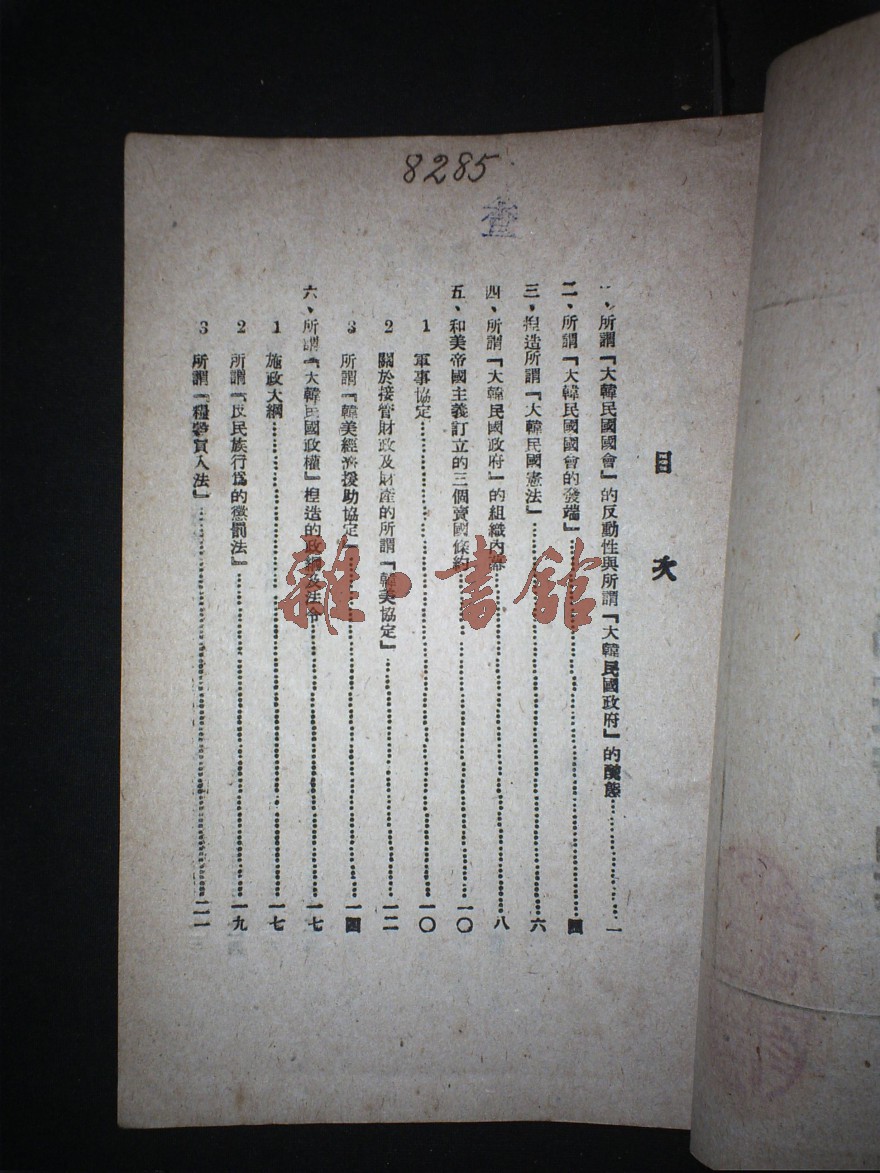 8285
查
目次
一、所謂『大韓民國國會』的反動性與所謂『大韓民國政府』的醜態…………一
二、所謂『大韓民國國會的發端』…………四
三、捏造所謂『大韓民國憲法』…………六
四、所謂『大韓民國政府』的組織內…………八
五、和美帝國主義訂立的三個賣國條約…………一〇
1 軍事協定…………一〇
2 關於接管財政及財產的所謂『韓美協定』…………一二
3 所謂『韓美經濟援助協定』…………一四
六、所謂『大韓民國政權』捏造的政綱及法令…………一七
1 施政大綱…………一七
2 所謂『反民族行為的懲罰法』…………一九
3 所謂『糧穀買入法』…………二一
雜·書館